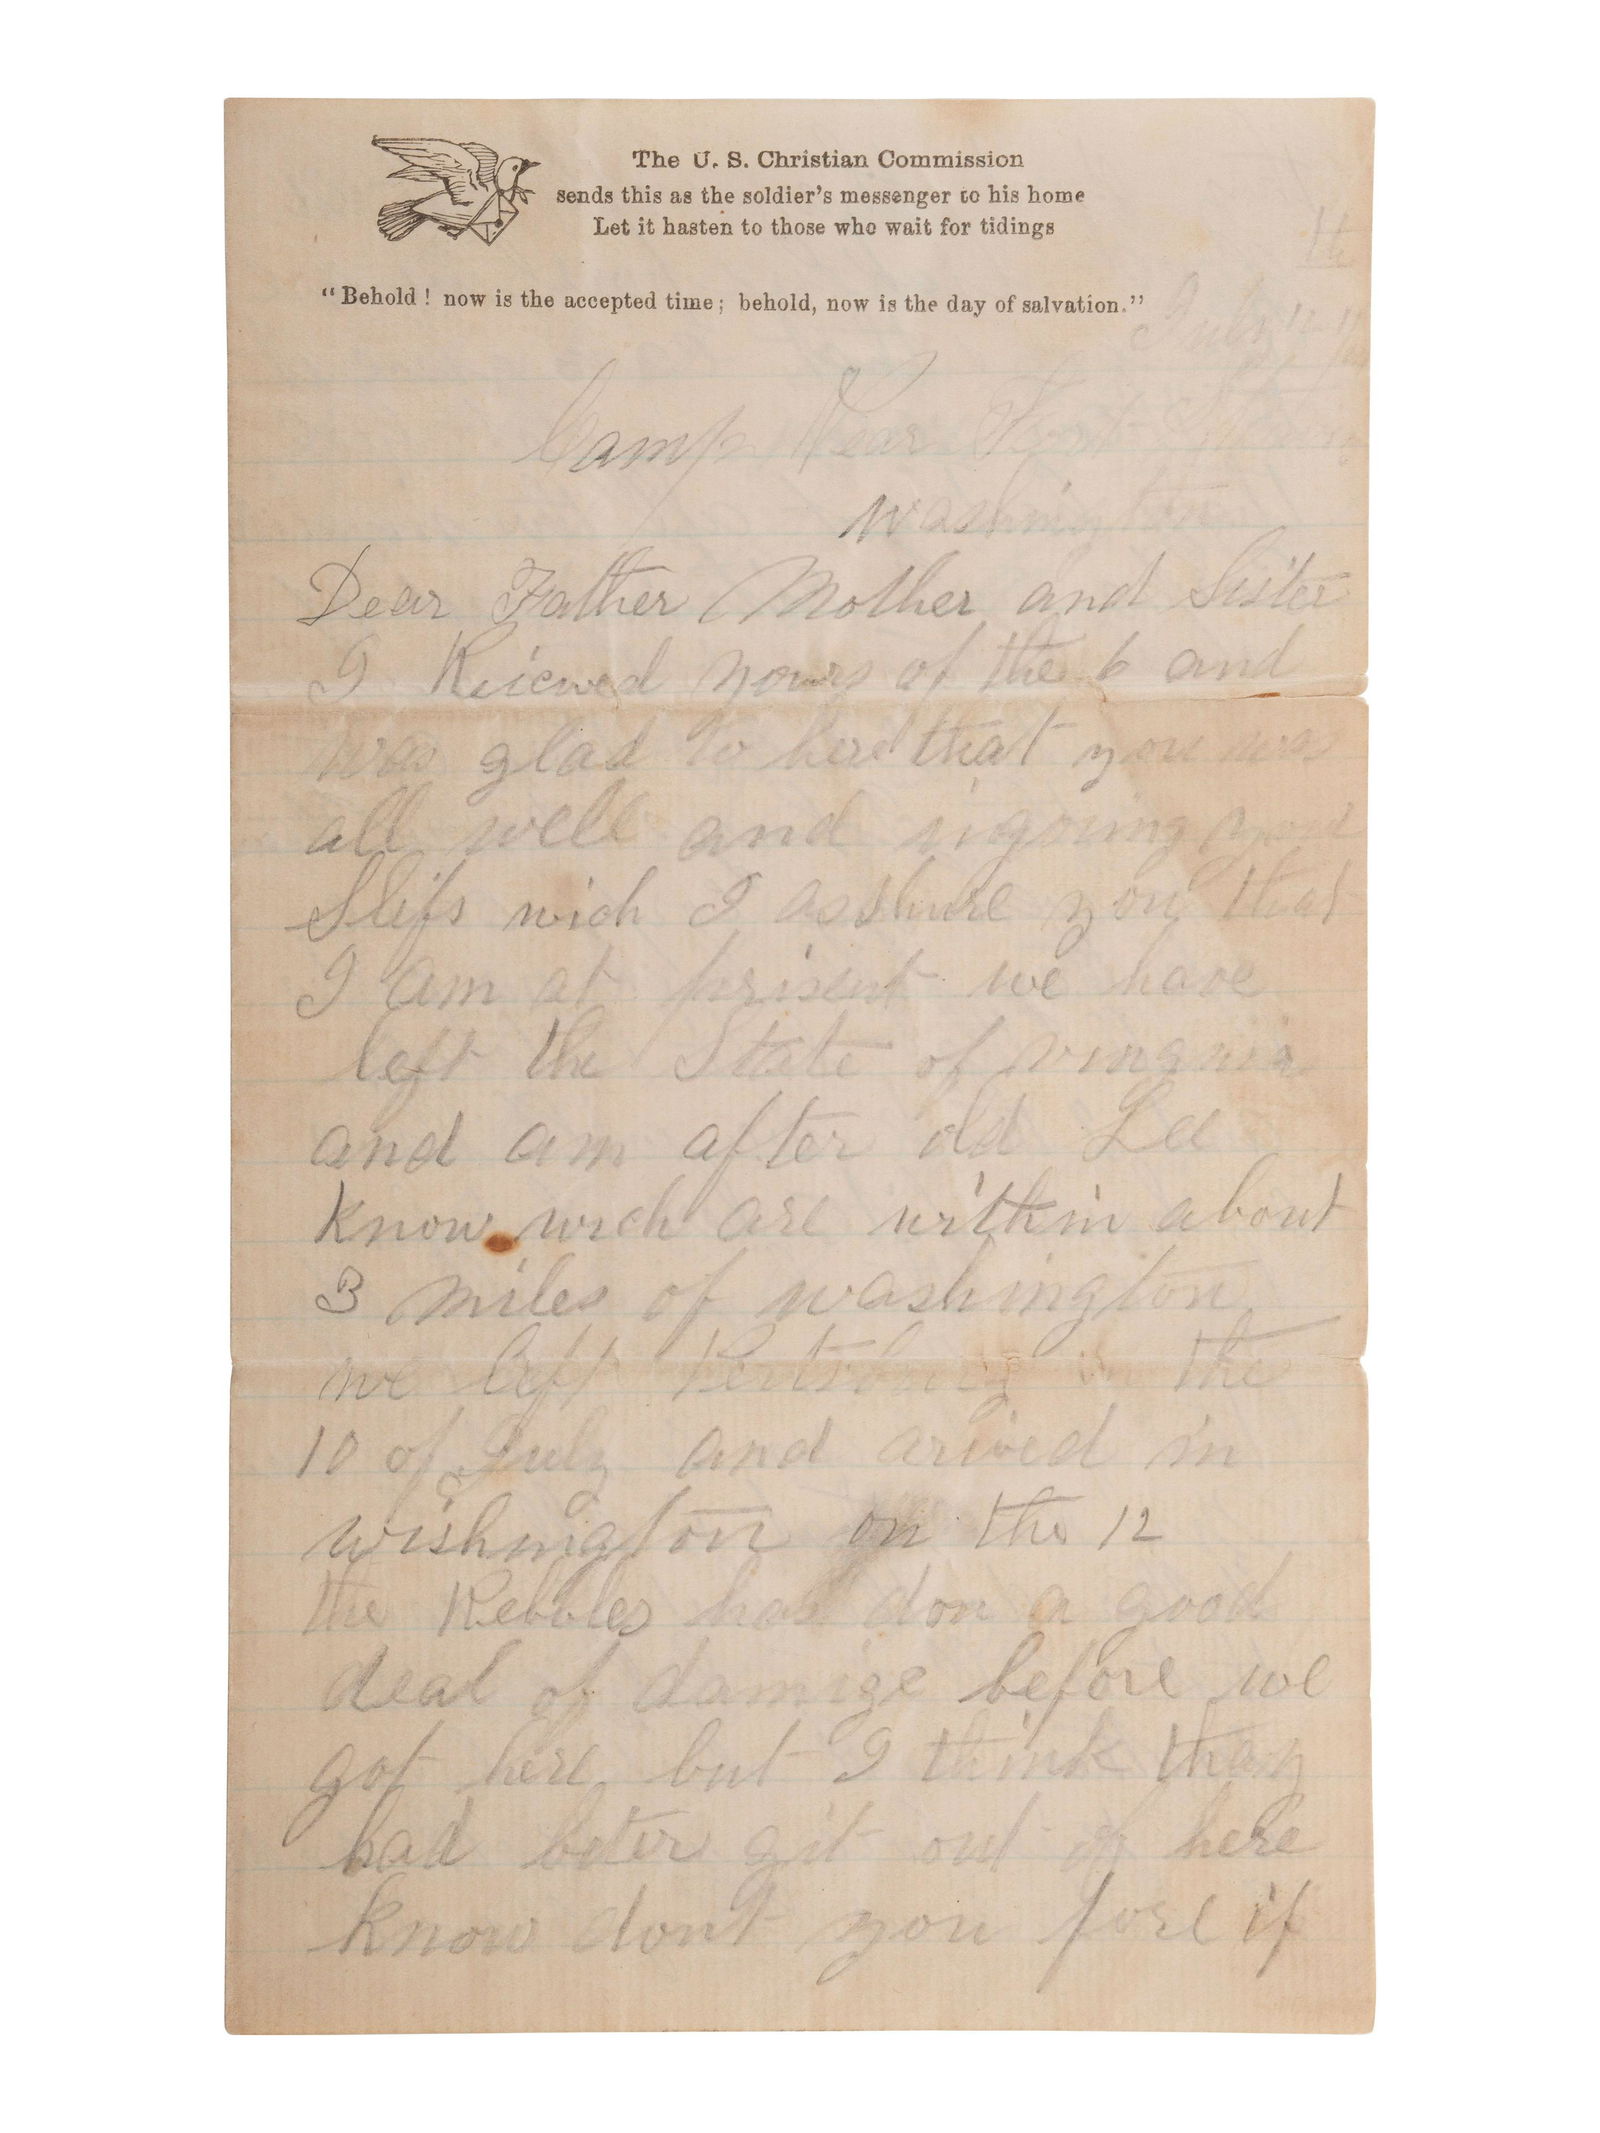 The U. S. Christian Commission
sends this as the soldier's messenger to his home
Let it hasten to those who wait for tidings
"Behold! now is the accepted time; behold, now is the day of salvation."
July 12
Camp Near Fort
Washington
Dear Father Mother and Sister
I Reicwed yours of the 6 and
was glad to here that you was
all well and ingoing your
Slifs wich I asshure you that
I am at prisent we have
left the State of
and am after old Lee
know wich are within about
3 miles of washington
we left in the
10 of July and arived in
wishington on the 12
the Rebbles has don a good
deal of damige before we
got here but I think thay
had beter git out of here
know dont you fore if